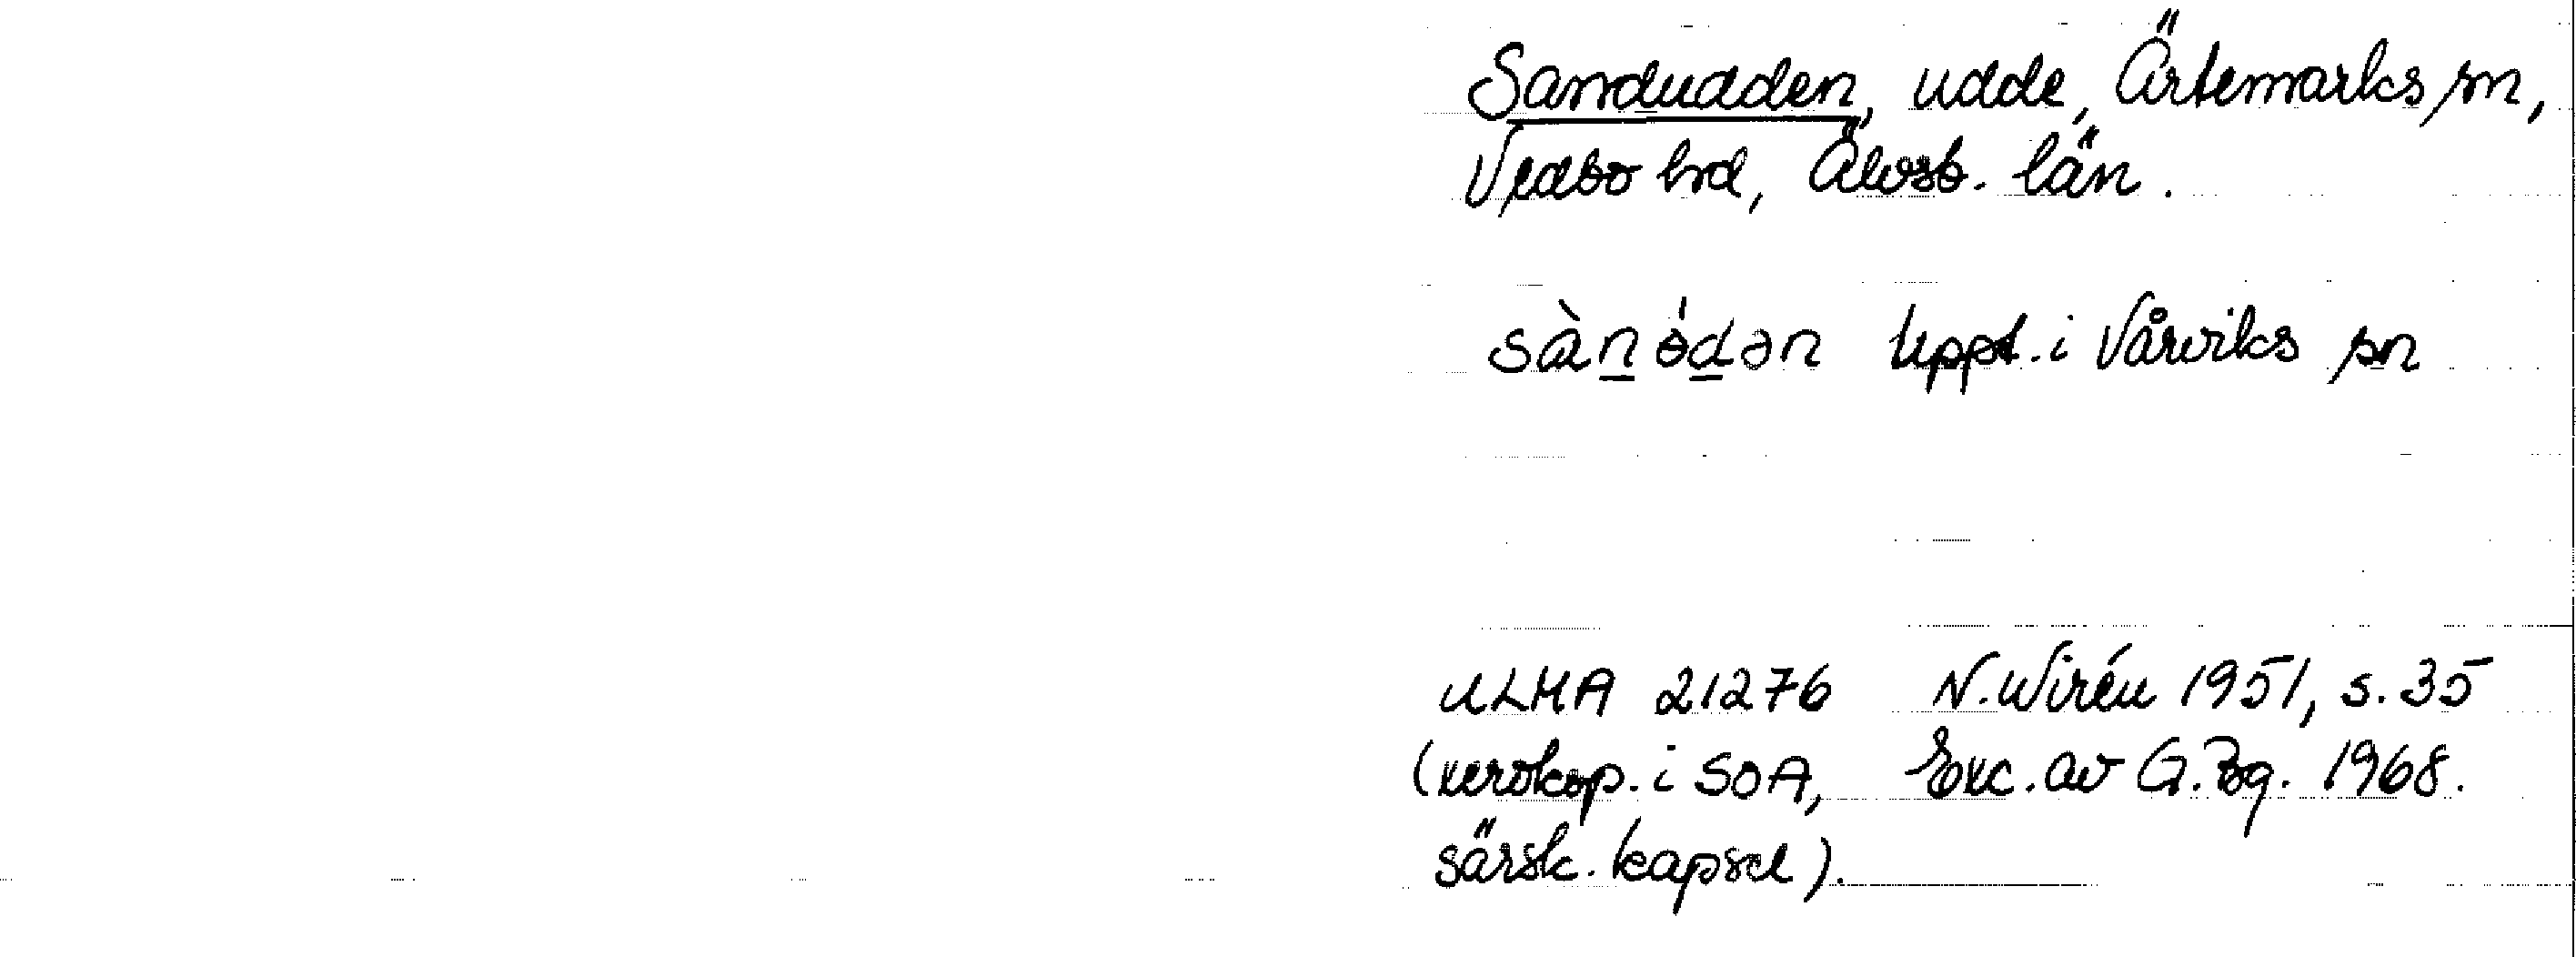 Sandudden, udde, Ärtemarks sn,
Vedbo hd, Älvsb. län.
sàn̲ ɵ́d̲ən Uppt. i Vårviks sn
ULMA 21276 N. Wirén 1951, s. 35
(xerokop. i SOA, Exc. av G. Bg. 1968.
särsk. kapsel).